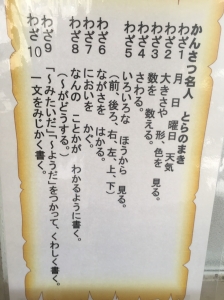 かんさつ名人 とらのまき
わざ1 月 日 曜日 天気
わざ2 大きさや 形、色を 見る。
わざ3 数を 数える。
わざ4 さわる。
わざ5 いろいろな ほうから 見る。
(前、後ろ、右、左、上、下)
わざ6 ながさを はかる。
わざ7 においを かぐ。
わざ8 なんの ことかが わかるように書く。
(~がどうする。)
わざ9 「~みたいだ」「~ようだ」をつかって、くわしく書く。
わざ10 一文をみじかく書く。